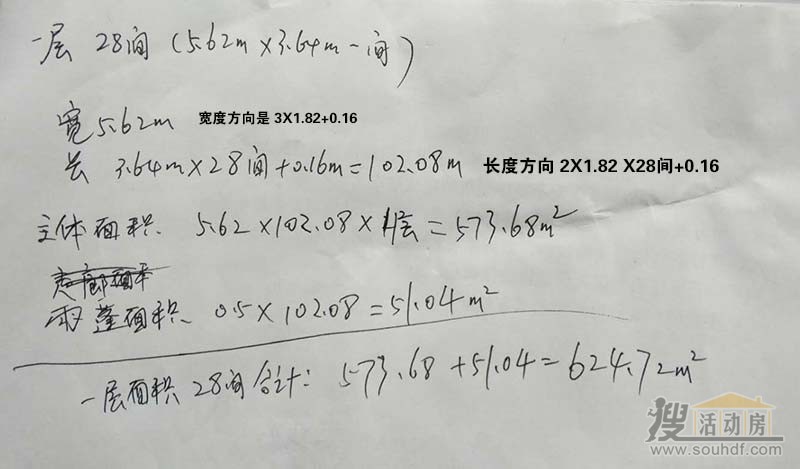 一层 28间 (5.62m×3.64m一间)
宽5.62m 宽度方向是 3X1.82+0.16
长 3.64m×28间+0.16m=102.08m 长度方向 2X1.82 X28间+0.16
主体面积 5.62×102.08×1层=573.68m²
走廊面积
雨蓬面积 0.5×102.08=51.04m²
一层面积 28间合计: 573.68+51.04=624.72m²
搜活动房
www.souhdf.com